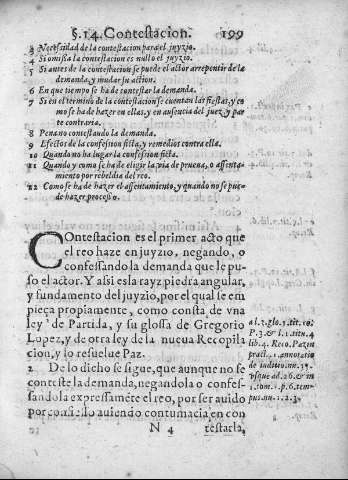 §.14. Contestacion. 199
3 Necessidad de la contestacion para el juyzio.
4 Si omissa la contestacion es nullo el juyzio.
5 Si antes de la contestacion se puede el actor arrepentir de la
demanda, y mudar su action.
6 En que tiempo se ha de contestar la demanda.
7 Si en el termino de la contestacion se cuentan las fiestas, y co
mo se ha de hazer en ellas, y en ausencia del juez, y par
te contraria.
8 Pena no contestando la demanda.
9 Efector de la confession ficta, y remedios contra ella.
10 Quando no ha lugar la confession ficta.
11 Quando y como se ha de eligir la via de prueua, o assenta-
miento por rebeldia del reo.
12 Como se ha de hazer el assentamiento, y quando no se pue-
de hazer processo.
COntestacion es el primer acto que
el reo haze en juyzio, negando, o
confessando la demanda que le pu-
so el actor. Y assi es la rayz piedra angular,
y fundamento del juyzio, por el qual se em
pieça propiamente, como consta de vna
ley de Partida, y su glossa de Gregorio
Lopez, y de otra ley de la nueua Recopila
cion, y lo resuelue Paz.
al.3.glo.1.tit.10.
P.3.& l.1.titu.4
lib.4. Reco. Paz en
pract.1. annotatio
de inditio.nu.15.
vsque ad.26.& in
1.tom.1.p.6.tem-
pus.nu.1.2.3.
2 De lo dicho se sigue, que aunque no se
conteste la demanda, negandola o confes-
sandola expressamẽte el reo, por ser auido
por confesso auiendo contumacia en con
N 4 testarla,